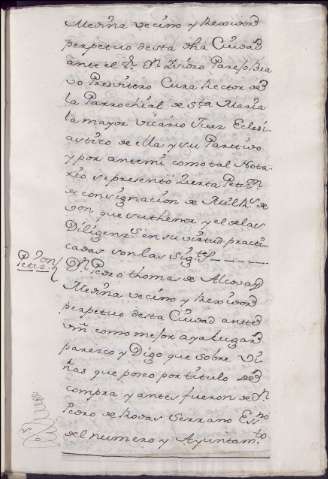 Medina vecino y Rexidor
perpetuo desta dha Ciudad
ante el Dr Dn Isidro
vo Presvitero Cura Rector de
la Parrochial de Sta Maria
la mayor vicario Juez Eclesi
astico de ella y su Partido
y por ante mi como tal Nota
rio se presentó zierta Petn
de consignacion de Rs de
von que su thenor y el de las
Diligenzs en su virtud practi
cadas son las sigtes
Petizon
Dn Pedro thomas de
Medina vecino y Rexidor
perpetuo desta Ciudad ante
vm como mejor aya lugar
paresco y Digo que sobre vi
ñas que poseo por titulo de
compra y antes fueron de Dn
Pedro de Rodas Serrano Essno
del numero y Ayuntamto